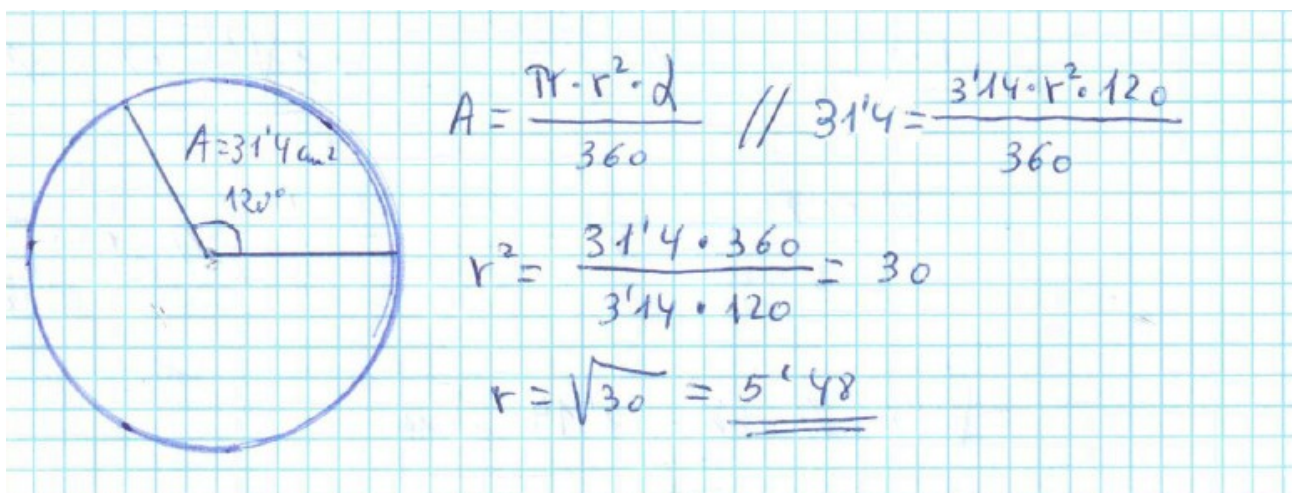 A=31'4 cm²
120°
A = π·r²·α / 360 // 31'4 = 3'14·r²·120 / 360
r² = 31'4·360 / 3'14·120 = 30
r = √30 = 5'48